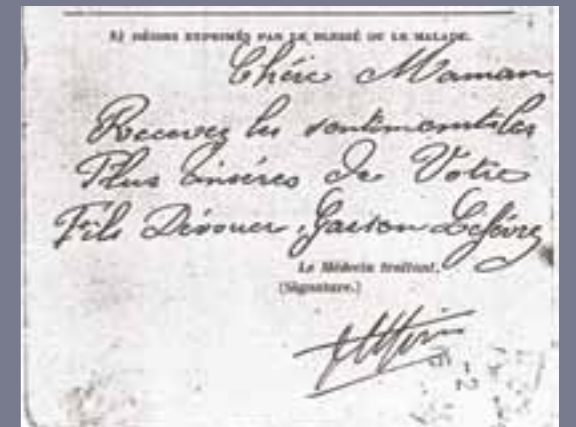 B) DÉSIRS EXPRIMÉS PAR LE BLESSÉ OU LE MALADE.
Chére Maman
Recevez les sentiments les
Plus Sinséres De Votre
Fils Dévouer, Gaston Lefévre
Le Médecin traitant.
(Signature.)